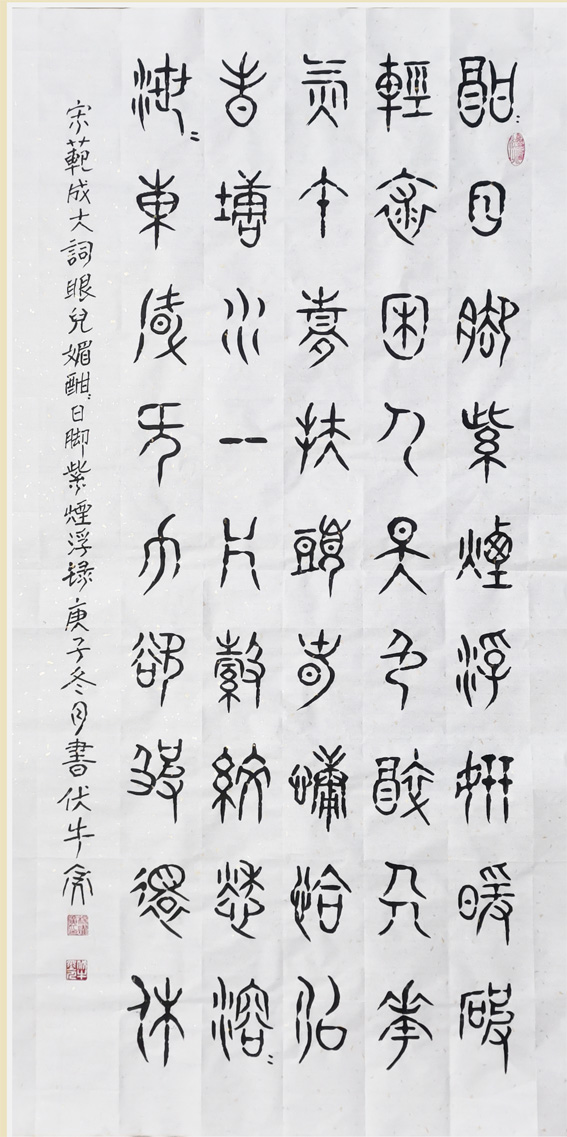 酣〃日腳紫煙浮妍暖破
輕裘困人天色醉人花
氣午夢扶頭春慵恰似
春塘水一片縠紋愁溶〃
洩〃東風无力欲皺還休
宋範成大詞眼兒媚酣〃日脚紫煙浮録庚子冬月書伏牛齋